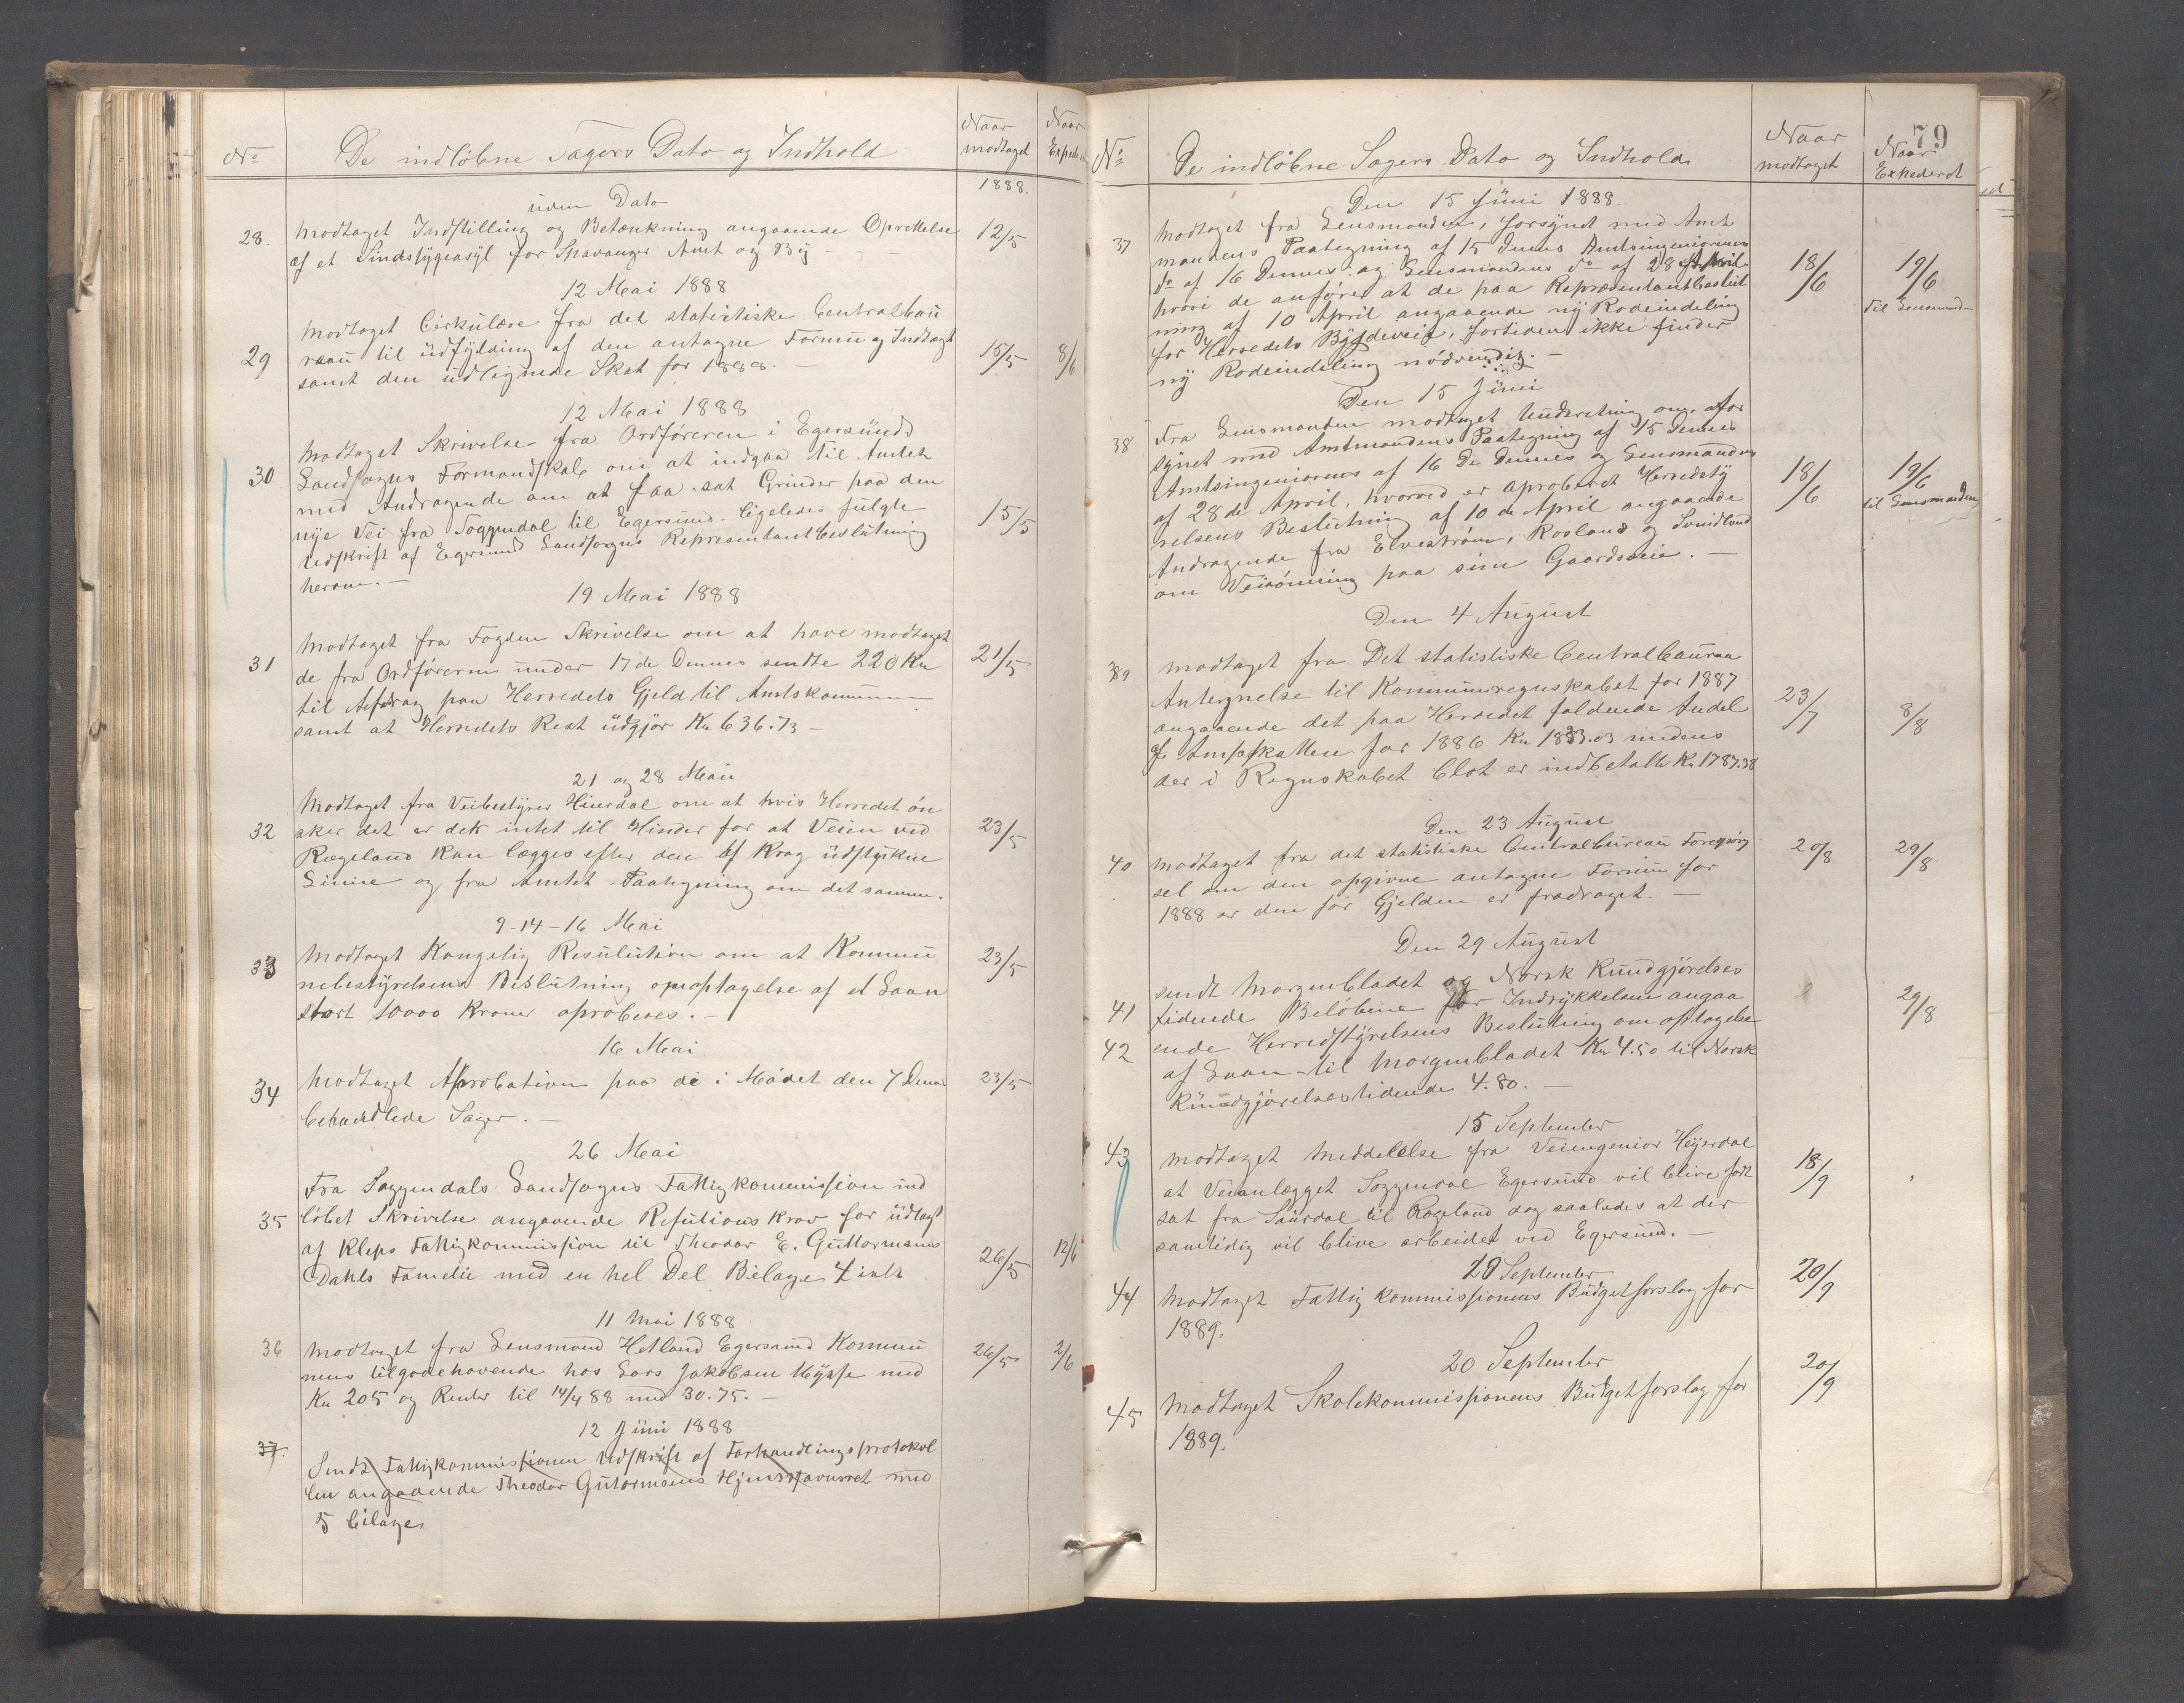 No
De indløbne Sagers Dato og Indhold
Naar modtaget
Naar
1888.
uden Dato
28. Modtaget Indstilling og Betænkning angaaende Oprettelse 12/5
af et Sindsygeasyl for Stavanger Amt og By
12 Mai 1888
Modtaget Cirkulære fra det statistiske Centralbau
29 raau til Udfylding af den antagne Formu og Indtægt 15/5 8/6
samt den udlignede Skat for 1888. –
12 Mai 1888
Modtaget Skrivelse fra Ordføreren i Egersunds
30 Landsogns Formandskab om at indgaa til Amtet
med Andragende om at faa sat Grinder paa den
nye Vei fra Soggendal til Egersund. ligeledes fulgte 15/5
Udskrift af Egersund Landsogns Representantbeslutning
herom. –
19 Mai 1888
Modtaget fra Fogden Skrivelse om at have modtaget
31 de fra Ordføreren under 17de Dennes sendte 220 Kr 21/5
til Afdrag paa Herredets Gjeld til Amtskommunen
samt at Herredets Rest udgjør Kr 636.73 –
21 og 28 Mai
Modtaget fra Veibestyrer Hierdal om at hvis Herredet øn
32 sker det er der intet til Hinder for at Veien ved 23/5
Rægeland kan lægges efter den af Krag udstukne
Linie og fra Amtet Paategning om det samme.
9-14-16 Mai
33 Modtaget Kongelig Resulution om at Kommu 23/5
nebestyrelsens Beslutning om optagelse af et Laan
stort 10000 Kroner aproberes. –
16 Mai
34 Modtaget Aprobation paa de i Mødet den 7 Dennes 23/5
behandlede Sager. –
26 Mai
Fra Soggendals Landsogns Fattigkommission ind
35 løbet Skrivelse angaaende Refutions krav for Udlagt
af Kleps Fattigkommission til Theodor E. Guttormsens 26/5 12/6
Dahls Familie med en hel Del Bilage 4 stk
11 Mai 1888
36 Modtaget fra Lensmand Hetland Egersund Kommu 26/5 2/6
nens tilgodehavende hos Lars Jakobsen Mysse med
Kr 205 og Renter til 14/4 88 med 30.75. –
12 Juni 1888
37. Sendt Fattigkommissionen Udskrift af Forhandlingsprotokol
len angaaende Theodor Gutormsens Hjemstavnsret med
5 bilage
79
No
De indløbne Sagers Dato og Indhold
Naar modtaget
Naar Expederet
Den 15 Juni 1888.
37 Modtaget fra Lensmanden, forsynet med Amt
mandens Paategning af 15 Dennes Amtsingeniørens
do af 16 Dennes og Lensmandens do af 28 April 18/6 19/6
hvori de anfører at de paa Repræsentantbeslut
til Lensmand
ning af 10 April angaaende ny Rodeindeling
for Herredets Bygdeveie, fortiden ikke finder
ny Rodeindeling nødvendig. –
Den 15 Juni
38 Fra Lensmanden modtaget Underetning om, for
synet med Amtmandens Paategning af 15 Dennes
Amtsingeniørens af 16 De Dennes og Lensmandens
af 28 de April, hvorved er aproberet Herredsty 18/6 19/6
relsens Beslutning af 10 de April angaaende til Lensmanden
Andragende fra Elvestrøm, Rosland og Svindland
om Veirøming paa sine Gaardsveie. –
Den 4 August
39 Modtaget fra Det statistiske Centralbauraa
Antegnelse til Kommuneregnskabet for 1887
angaaende det paa Herredet faldende Andel 23/7 8/8
af Amtsskatten for 1886 Kr 1833.03 medens
der i Regnskabet blot er indbetalt Kr 1787.38
Den 23 August
40 Modtaget fra det statistiske Centralbureau Forespørg 20/8 29/8
sel om den opgivne antagne Formu for
1888 er den før Gjelden er fradraget. –
Den 29 August
sendt Morgenbladet og Norsk Kundgjørelses
41 tidende Beløbene for Indrykkelsen angaa 29/8
42 ende Herredstyrelsens Beslutning om optagelse
af Laan – til Morgenbladet Kr 4.50 til Norsk
Kundgjørelsestidende 4.80. –
15 September
43 Modtaget Meddelelse fra Veiingeniør Heyerdal
at Veianlægget Soggendal Egersund vil blive fort 18/9
sat fra Saurdal til Rægeland dog saaledes at der
samtidig vil blive arbeidet ved Egersund. –
20 September
44 Modtaget Fattigkommissionens Budgetforslag for 20/9
1889.
20 September
45 Modtaget Skolekommissionens Budgetforslag for 20/9
1889.